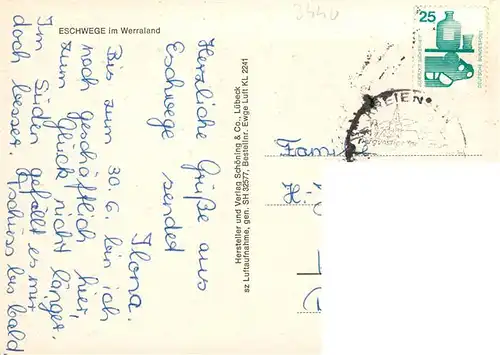 3440
ESCHWEGE im Werraland
Herzliche Grüße aus
Eschwege sendet
Ilona.
Bis zum 30.6. bin ich
noch geschäftlich hier,
zum Glück nicht länger.
Im Süden gefällt es mir
doch besser. Tschüss bis bald
Hersteller und Verlag Schöning & Co., Lübeck
sz Luftaufnahme, gen. SH 32577, Bestellnr. Ewge Luft KL 2241
25
DEUTSCHE BUNDESPOST
Familie
H.